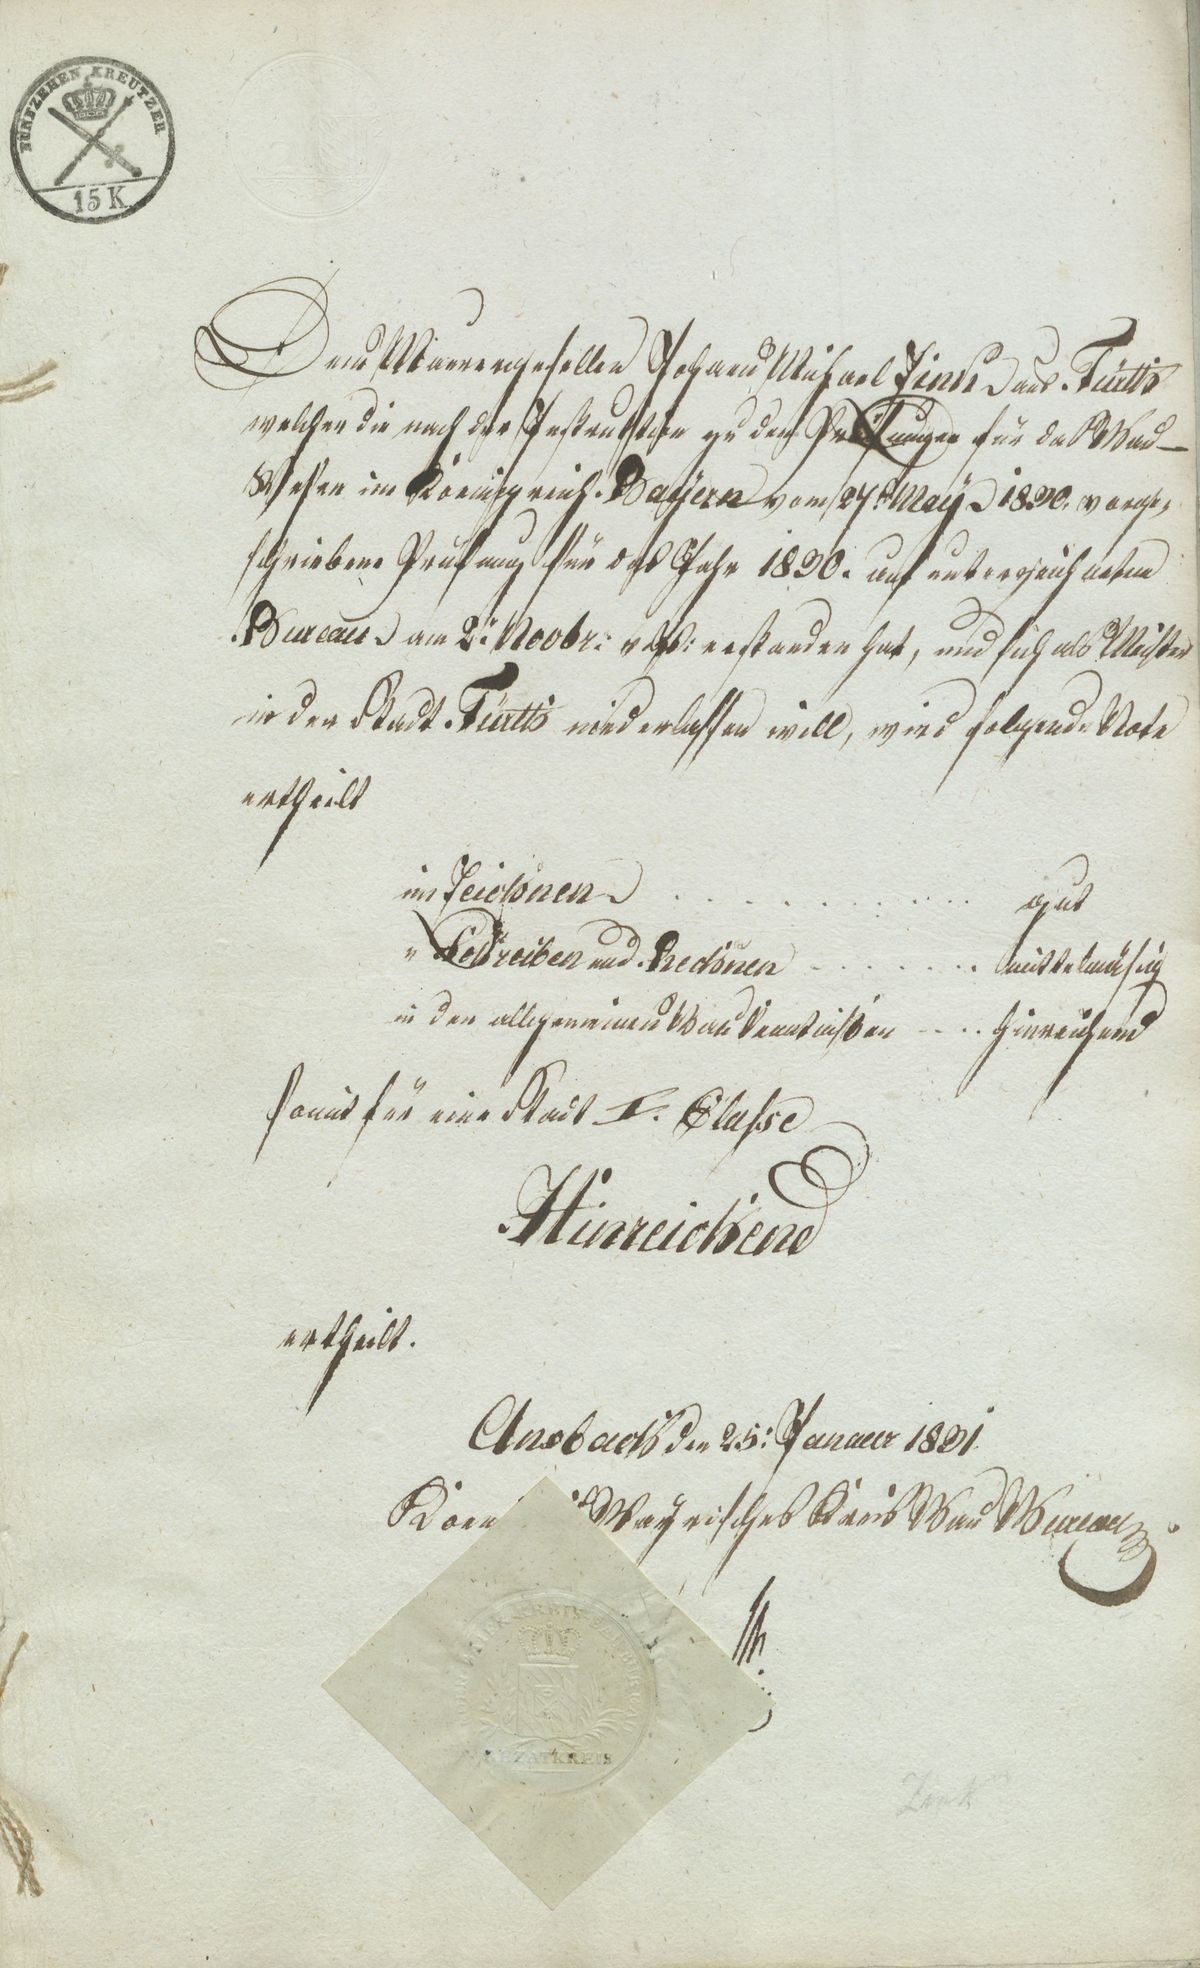 FÜNFZEHEN KREUTZER
15 K
Dem Maurergesellen Johann Michael Zink aus Fürth
welcher die nach der Instruktion zu den Prüfungen für das Bau-
Wesen im Koenigreich Bayern vom 27t. May 1830. vorge-
schriebene Prüfung für das Jahr 1830. am unterzeichneten
Bureau am 2t. Novbr: erstanden hat, und sich als Meister
in der Stadt Fürth niederlassen will, wird folgende Note
ertheilt
im Zeichnen . . . . . . . . . . gut
" Schreiben und Rechnen . . . . . . . mittelmäßig
in den allgemeinen Baukenntnißen . . . . hinreichend
somit für eine Stadt I. Classe
Hinreichend
ertheilt.
Ansbach den 25t. Januar 1831.
Bayerisches Kreis Bau Bureau
REZATKREIS
Zink